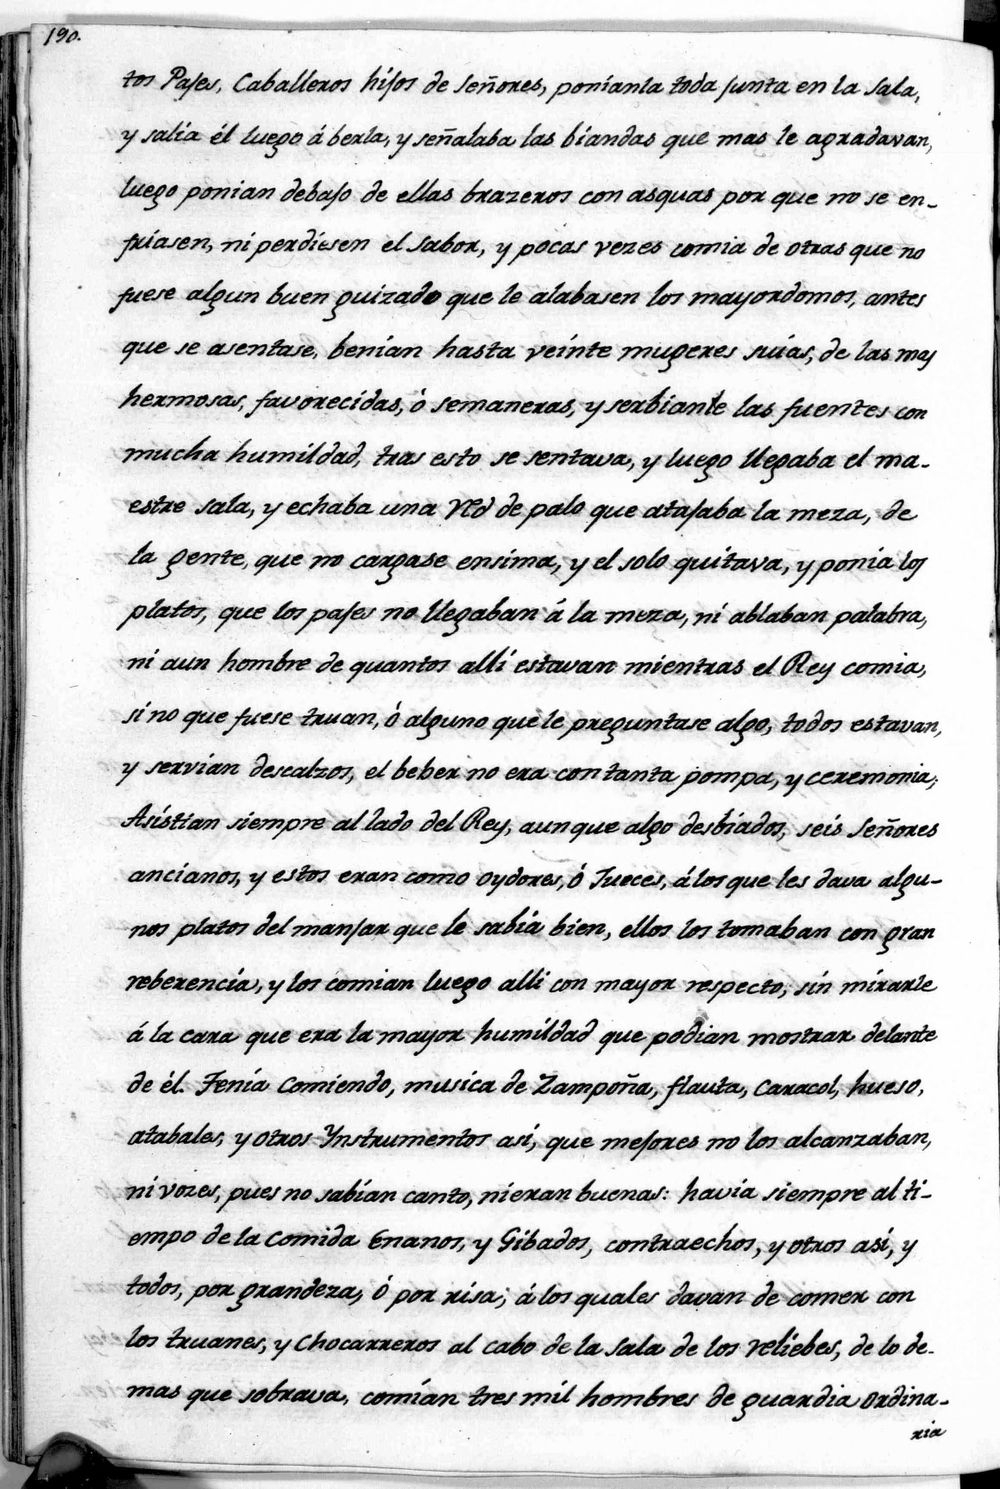 190.
tos Pajes, Caballeros hijos de señores, ponianla toda junta en la sala,
y salia él luego á berla, y señalaba las biandas que mas le agradavan,
luego ponian debajo de ellas brazeros con asquas por que no se en-
friasen, ni perdiesen el sabor, y pocas vezes comia de otras que no
fuese algun buen guizado que le alabasen los mayordomos, antes
que se asentase, benian hasta veinte mugeres suias, de las mas
hermosas, favorecidas, ò semaneras, y serbianle las fuentes con
mucha humildad, tras esto se sentava, y luego llegaba el ma-
estre sala, y echaba una Red de palo que atajaba la meza, de
la gente, que no cargase ensima, y el solo quitava, y ponia los
platos, que los pajes no llegaban á la meza, ni ablaban palabra,
ni aun hombre de quantos alli estavan mientras el Rey comia,
sino que fuese truan, ò alguno que le preguntase algo, todos estavan,
y servian descalzos, el beber no era con tanta pompa, y ceremonia,
Asistian siempre al lado del Rey, aunque algo desbiados, seis señores
ancianos, y estos eran como oydores, ò Jueces, á los que les dava algu-
nos platos del manjar que le sabiá bien, ellos los tomaban con gran
reberencia, y los comian luego alli con mayor respecto, sin mirarle
á la cara que era la mayor humildad que podian mostrar delante
de él. Tenia comiendo, musica de Zampoña, flauta, Caracol, hueso,
atabales, y otros Ynstrumentos asi, que mejores no los alcanzaban,
ni vozes, pues no sabian canto, ni eran buenas: havia siempre al ti-
empo de la comida Enanos, y Gibados, contraechos, y otros asi, y
todos, por grandeza, ò por risa; á los quales davan de comer con
los truanes, y chocarreros al cabo de la sala de los reliebes, de lo de-
mas que sobrava, comian tres mil hombres de guardia ordina-
ria